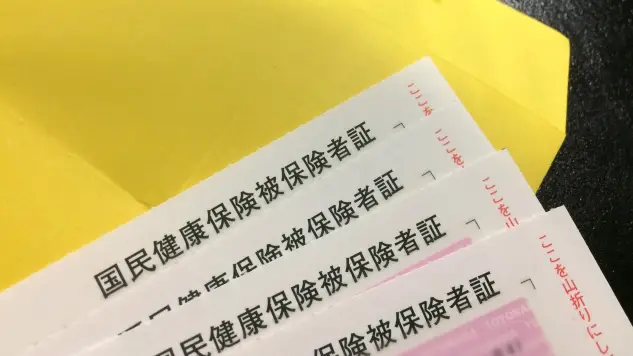 国民健康保険被保険者証
ここを
健康保険被保険者証
ここを
国民健康保険被保険者証
ここを山
保険被保険者証
ここを山折りにし